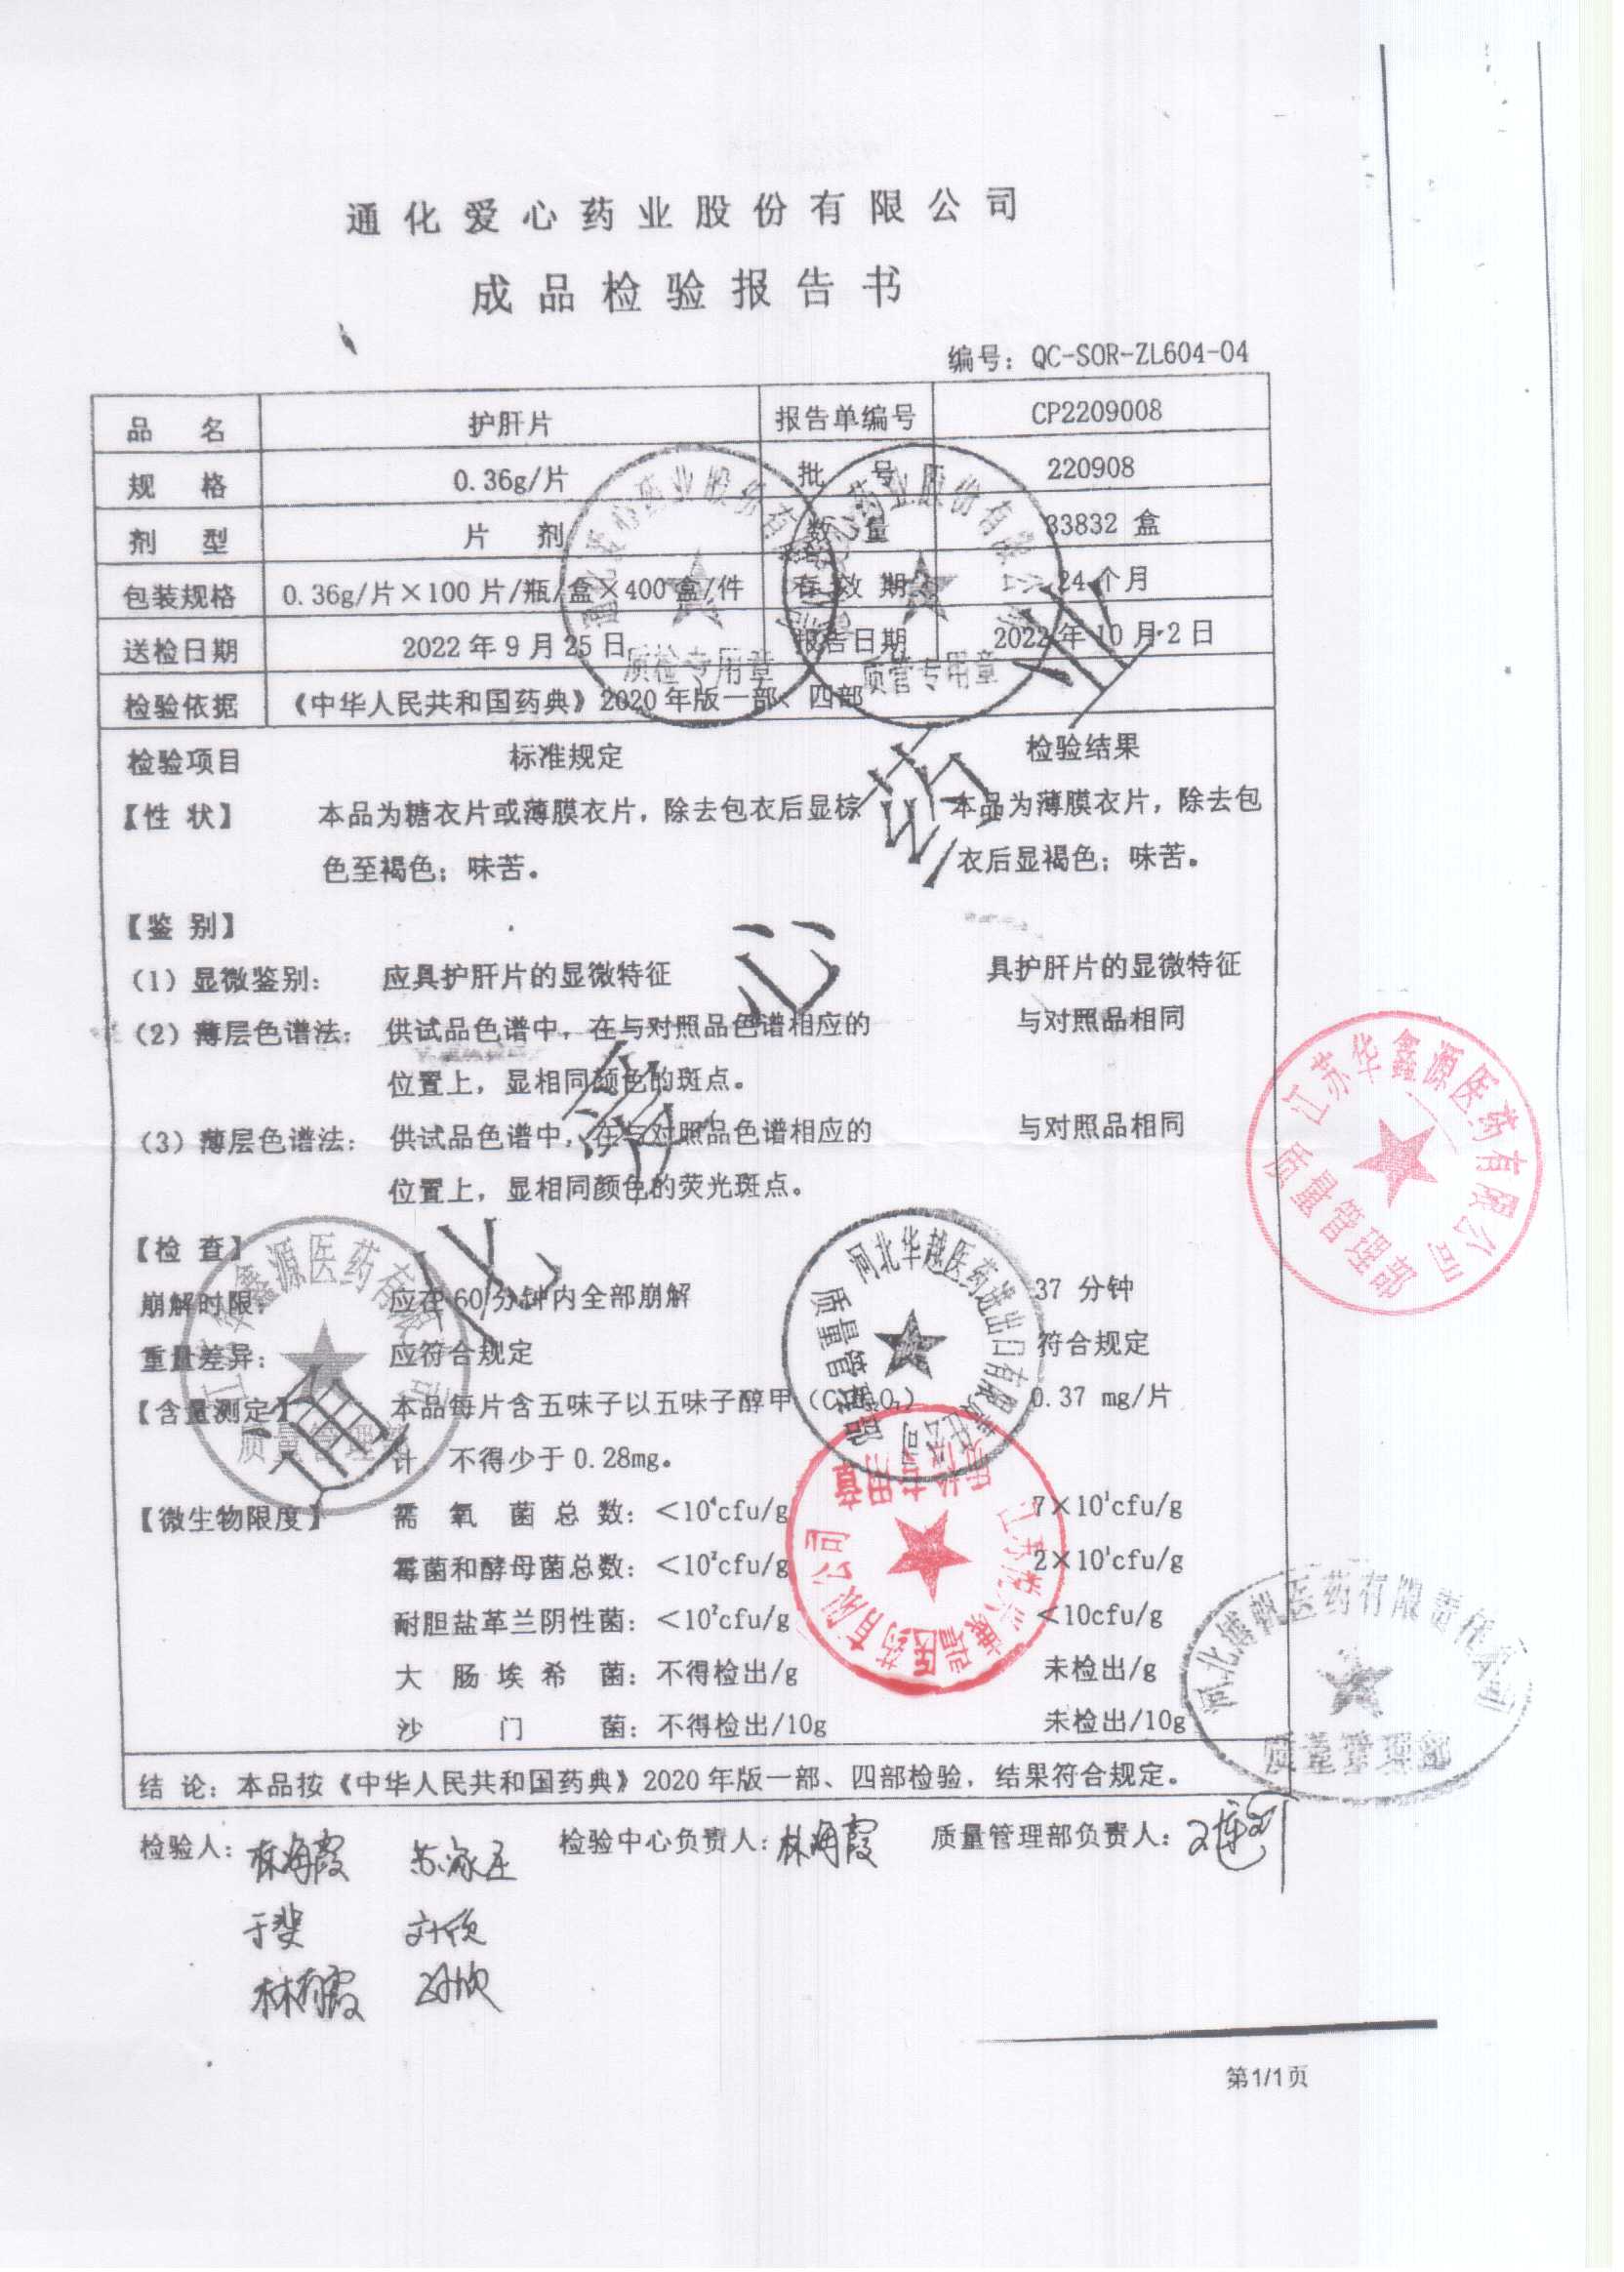 通化爱心药业股份有限公司
成品检验报告书
编号：QC-SOR-ZL604-04
品 名 护肝片 报告单编号 CP2209008
规 格 0.36g/片 批 号 220908
剂 型 片 剂 数 量 33832 盒
包装规格 0.36g/片×100 片/瓶/盒×400 盒/件 有 效 期 24 个月
送检日期 2022 年 9 月 25 日 报告日期 2022 年 10 月 2 日
检验依据 《中华人民共和国药典》2020 年版一部、四部
检验项目 标准规定 检验结果
【性 状】 本品为糖衣片或薄膜衣片，除去包衣后显棕 本品为薄膜衣片，除去包
色至褐色；味苦。 衣后显褐色；味苦。
【鉴 别】
（1）显微鉴别： 应具护肝片的显微特征 具护肝片的显微特征
（2）薄层色谱法： 供试品色谱中，在与对照品色谱相应的 与对照品相同
位置上，显相同颜色的斑点。
（3）薄层色谱法： 供试品色谱中，在与对照品色谱相应的 与对照品相同
位置上，显相同颜色的荧光斑点。
【检 查】
崩解时限： 应在 60 分钟内全部崩解 37 分钟
重量差异： 应符合规定 符合规定
【含量测定】 本品每片含五味子以五味子醇甲 0.37 mg/片
计 不得少于 0.28mg。
【微生物限度】 需 氧 菌 总 数：＜10⁴cfu/g 7×10¹cfu/g
霉菌和酵母菌总数：＜10²cfu/g 2×10¹cfu/g
耐胆盐革兰阴性菌：＜10²cfu/g ＜10cfu/g
大 肠 埃 希 菌：不得检出/g 未检出/g
沙 门 菌：不得检出/10g 未检出/10g
结 论：本品按《中华人民共和国药典》2020 年版一部、四部检验，结果符合规定。
检验人： 检验中心负责人：林海霞 质量管理部负责人：
第1/1页
通化爱心药业股份有限公司
质检专用章
质管专用章
通化爱心药业
江苏华鑫源医药有限公司
质量管理部
江苏华鑫源医药有限公司
质量管理部
质量管理部
质检专用章
河北博帆医药有限责任公司
质量管理部